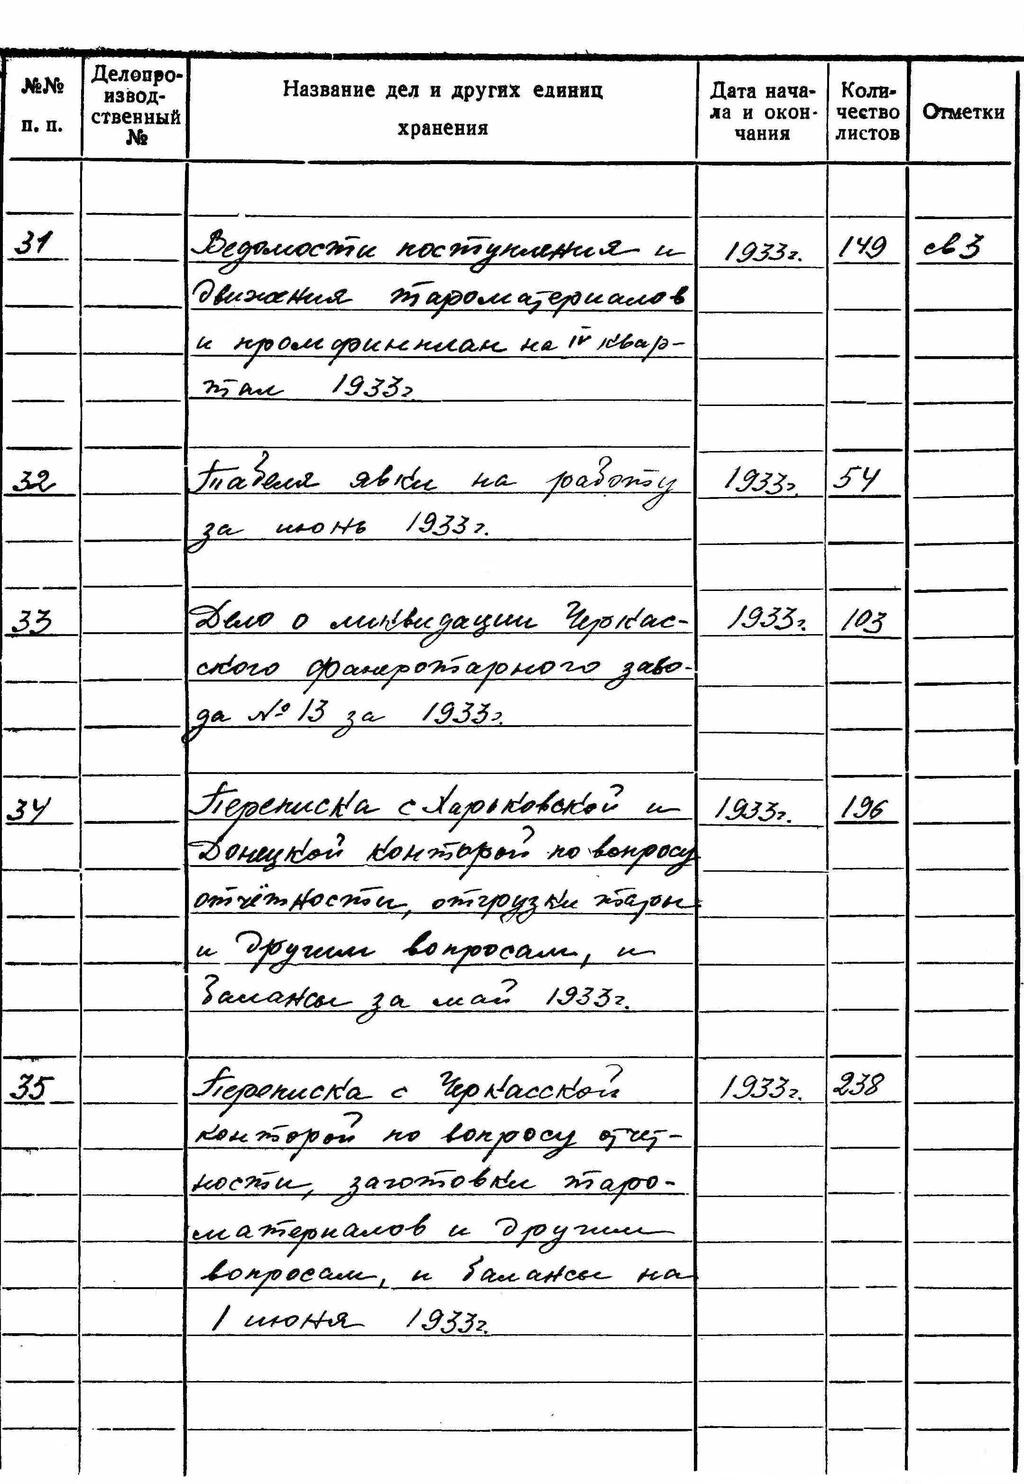 №№ п. п.
Делопро-
извод-
ственный
№
Название дел и других единиц
хранения
Дата нача-
ла и окон-
чания
Коли-
чество
листов
Отметки
31 Ведомости поступления и 1933г. 149 св 3
движения тароматериалов
и промфинплан на IV квар-
тал 1933г
32 Табеля явки на работу 1933г. 54
за июнь 1933г.
33 Дело о ликвидации Черкас- 1933г. 103
ского фанеротарного заво-
да №13 за 1933г.
34 Переписка с Харьковской и 1933г. 196
Донецкой конторой по вопросу
отчётности, отгрузки тары
и другим вопросам, и
балансы за май 1933г.
35 Переписка с Черкасской 1933г. 238
конторой по вопросу отчет-
ности, заготовки таро-
материалов и другим
вопросам, и балансы на
1 июня 1933г.